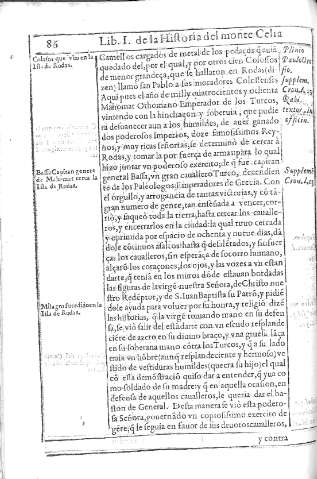 86
Lib. I. de la Historia del monte Celia
Colosos que vuo en la
Isla de Rodas.
Camellos cargados de metal de los pedaços q̃ auia
quedado del, por el qual, y por otros cien Colossos
de menor grandeça, que se hallaron en Rodas di-
zen, llamó san Pablo a sus moradores Colossenses
Aqui pues el año de mil y quatrocientos y ochenta
Mahomat Othomano Emperador de los Turcos,
viniendo con la hinchaçon y soberuia, que pudie
ra desuanecer aun a los humildes, de auer ganado
dos poderosos Imperios, doze famosissimos Rey-
nos, y muy ricas señorias, se determinó de cercar à
Rodas, y tomar la por fuerça de armas: para lo qual
hizo juntar vn poderoso exercito; de q̃ fue capitan
general Bassa, vn gran cauallero Turco, decendien
te de los Paleologos, Emperadores de Grecia. Con
el orgullo, y arrogancia de tantas victorias, y co tã
gran numero de gente, tan enseñada a vencer, cor-
rió, y saqueó toda la tierra, hasta cercar los caualle-
ros, y encerrarlos en la ciudad: la qual tuuo cercada
y oprimida por espacio de ochenta y nueue dias, dã
dole continuos asaltos: hasta q̃ debilitados, y sin fuer
ças los caualleros, sin esperãça de socorro humano,
alçarõ los coraçones, los ojos, y las vozes a vn estan
darte, q̃ teniã en los muros dõde estauan bordadas
las figuras de la virgē nuestra Señora, de Christo nue
stro Redẽptor, y de S. Iuan Baptista su Patrõ, y pidiẽ
dole ayuda para voluer por su honra, y religiõ
las historias, q̃ la virgẽ tomando mano en su defen
sa, se vió salir del estãdarte con vn escudo resplande
ciẽte de azero en su diuino braço, y vna gineta lãça
en su soberana mano cõtra los Turcos, y q̃ a su lado
traia vn hõbre (aunq̃ resplandeciente y hermoso) ve
stido de vestiduras humildes (que era su hijo) el qual
cõ esta demõstraciõ quiso dar a entender, q̃ yua co
mo soldado de su madre: y q̃ en aquella ocasion, en
defensa de aquellos caualleros, le queria dar el ba-
ston de General. Desta manera se vió esta podero-
sa Señora, gouernãdo vn copiosissimo exercito de
gẽte, q̃ le seguia en fauor de sus deuotos caualleros,
y contra
Bassa Capitan genera
de Mahomet cerca la
Isla de Rodas.
Milagro sucedido en la
Isla de Rodas.
Plinio
supplem.
Supplemē